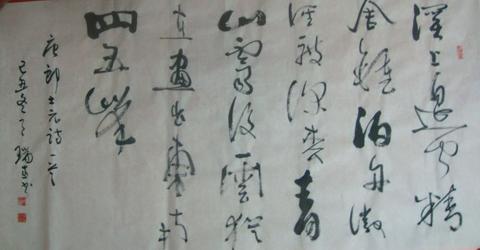 溪上遥闻精
舍鐘泊舟微
径度深松青
山霁後雲犹
在畫出東南
四五峯
唐郎士元詩一首
己丑冬月 瑞